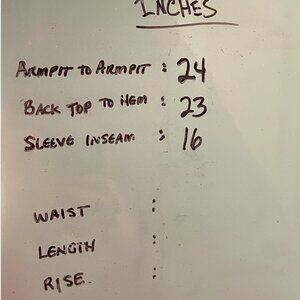 INCHES
ARMPIT TO ARMPIT : 24
BACK TOP TO HEM : 23
SLEEVE INSEAM : 16
WAIST :
LENGTH :
RISE :